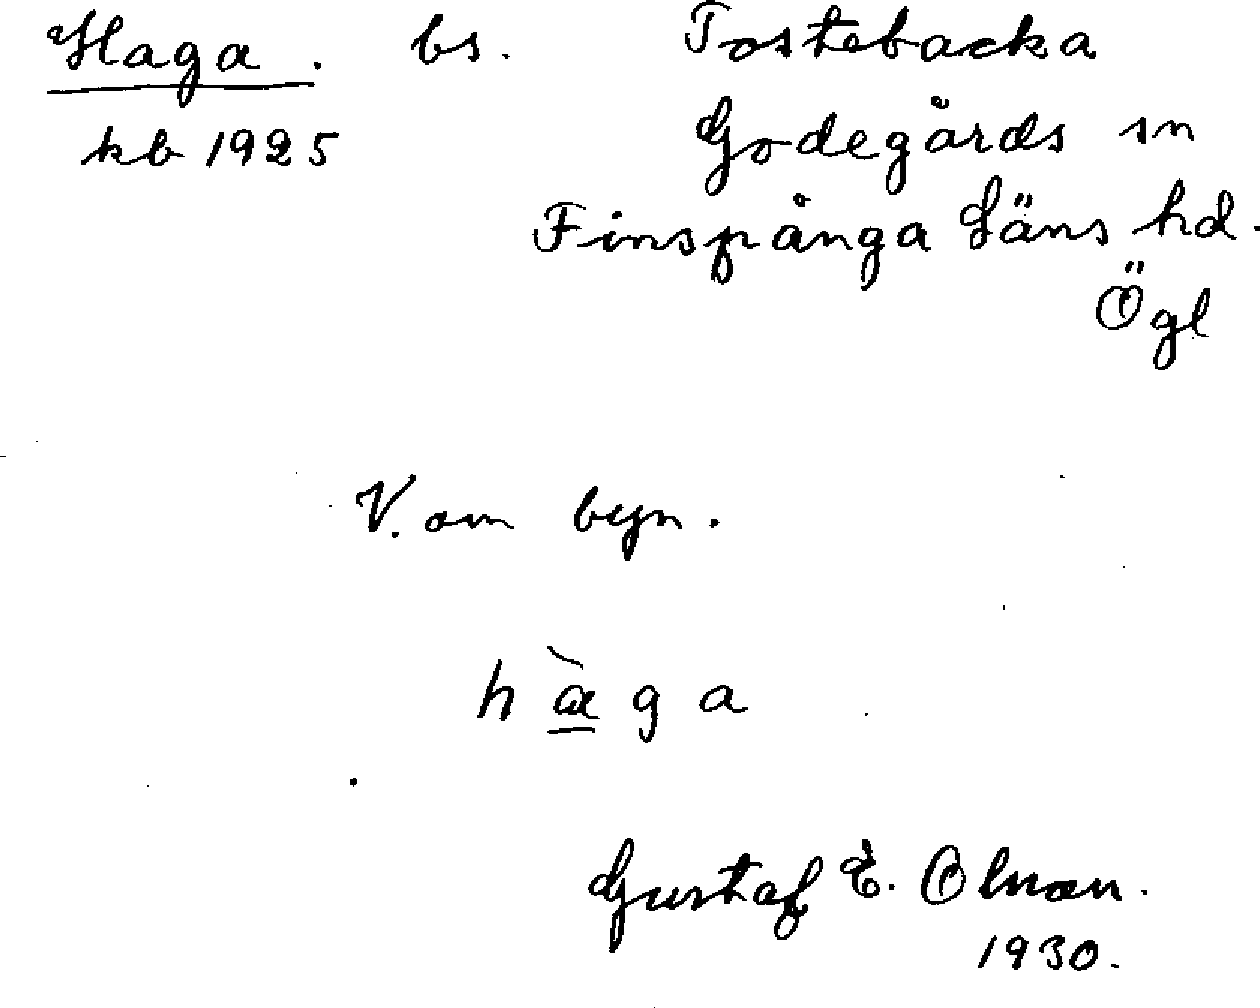 Haga. bs. Tostebacka
kb 1925 Godegårds sn
Finspånga Läns hd.
Ögl
V. om byn.
hàga
Gustaf E. Olman.
1930.